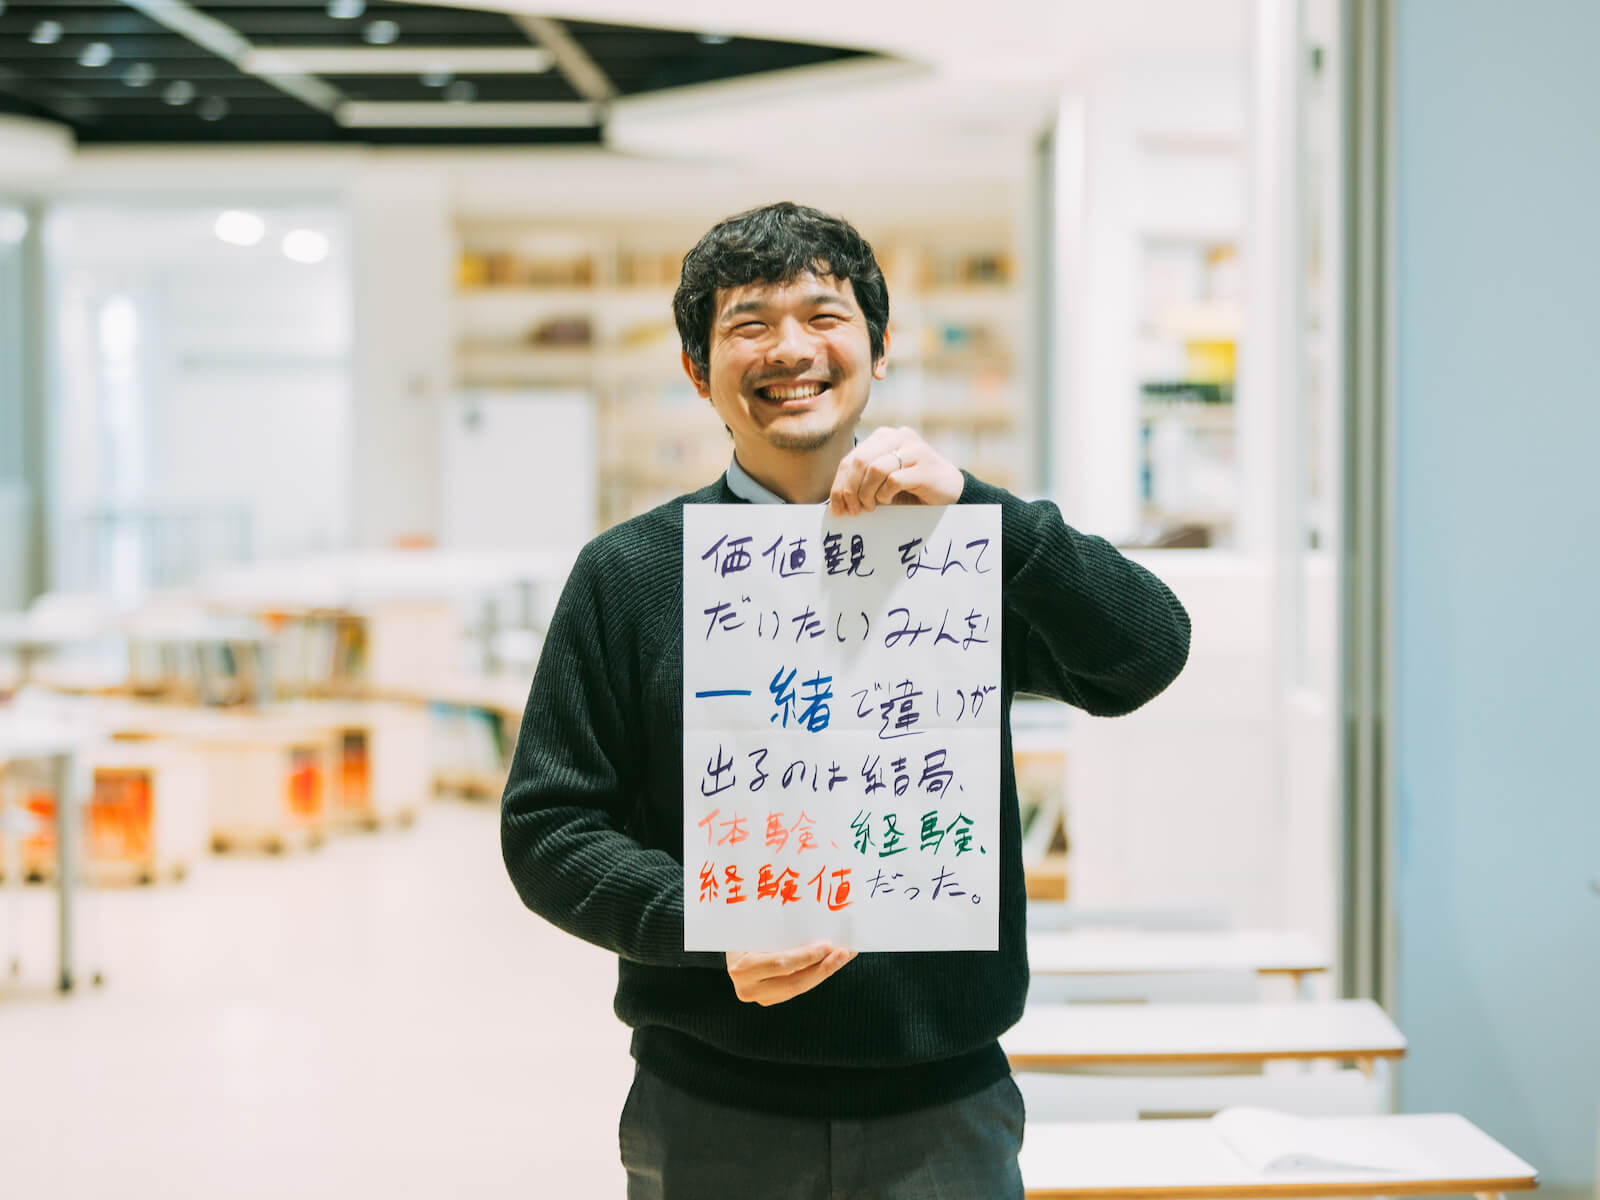 価値観なんて
だいたいみんな
一緒で違いが
出るのは結局、
体験、経験、
経験値だった。